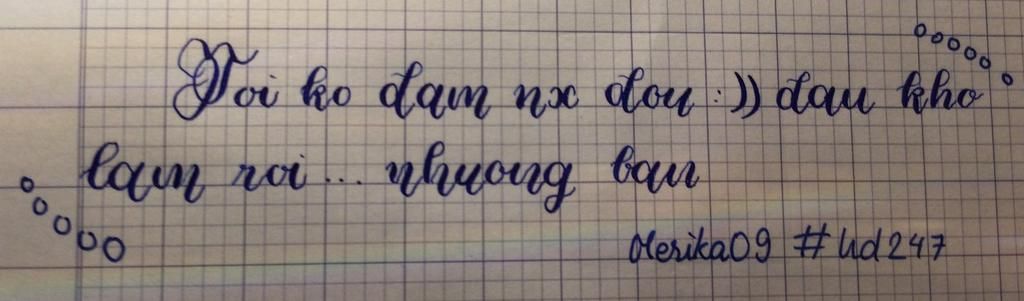 Toi ko dam nx dou :)) dau kho
lam roi... nhuong ban
olerika09 #hd247